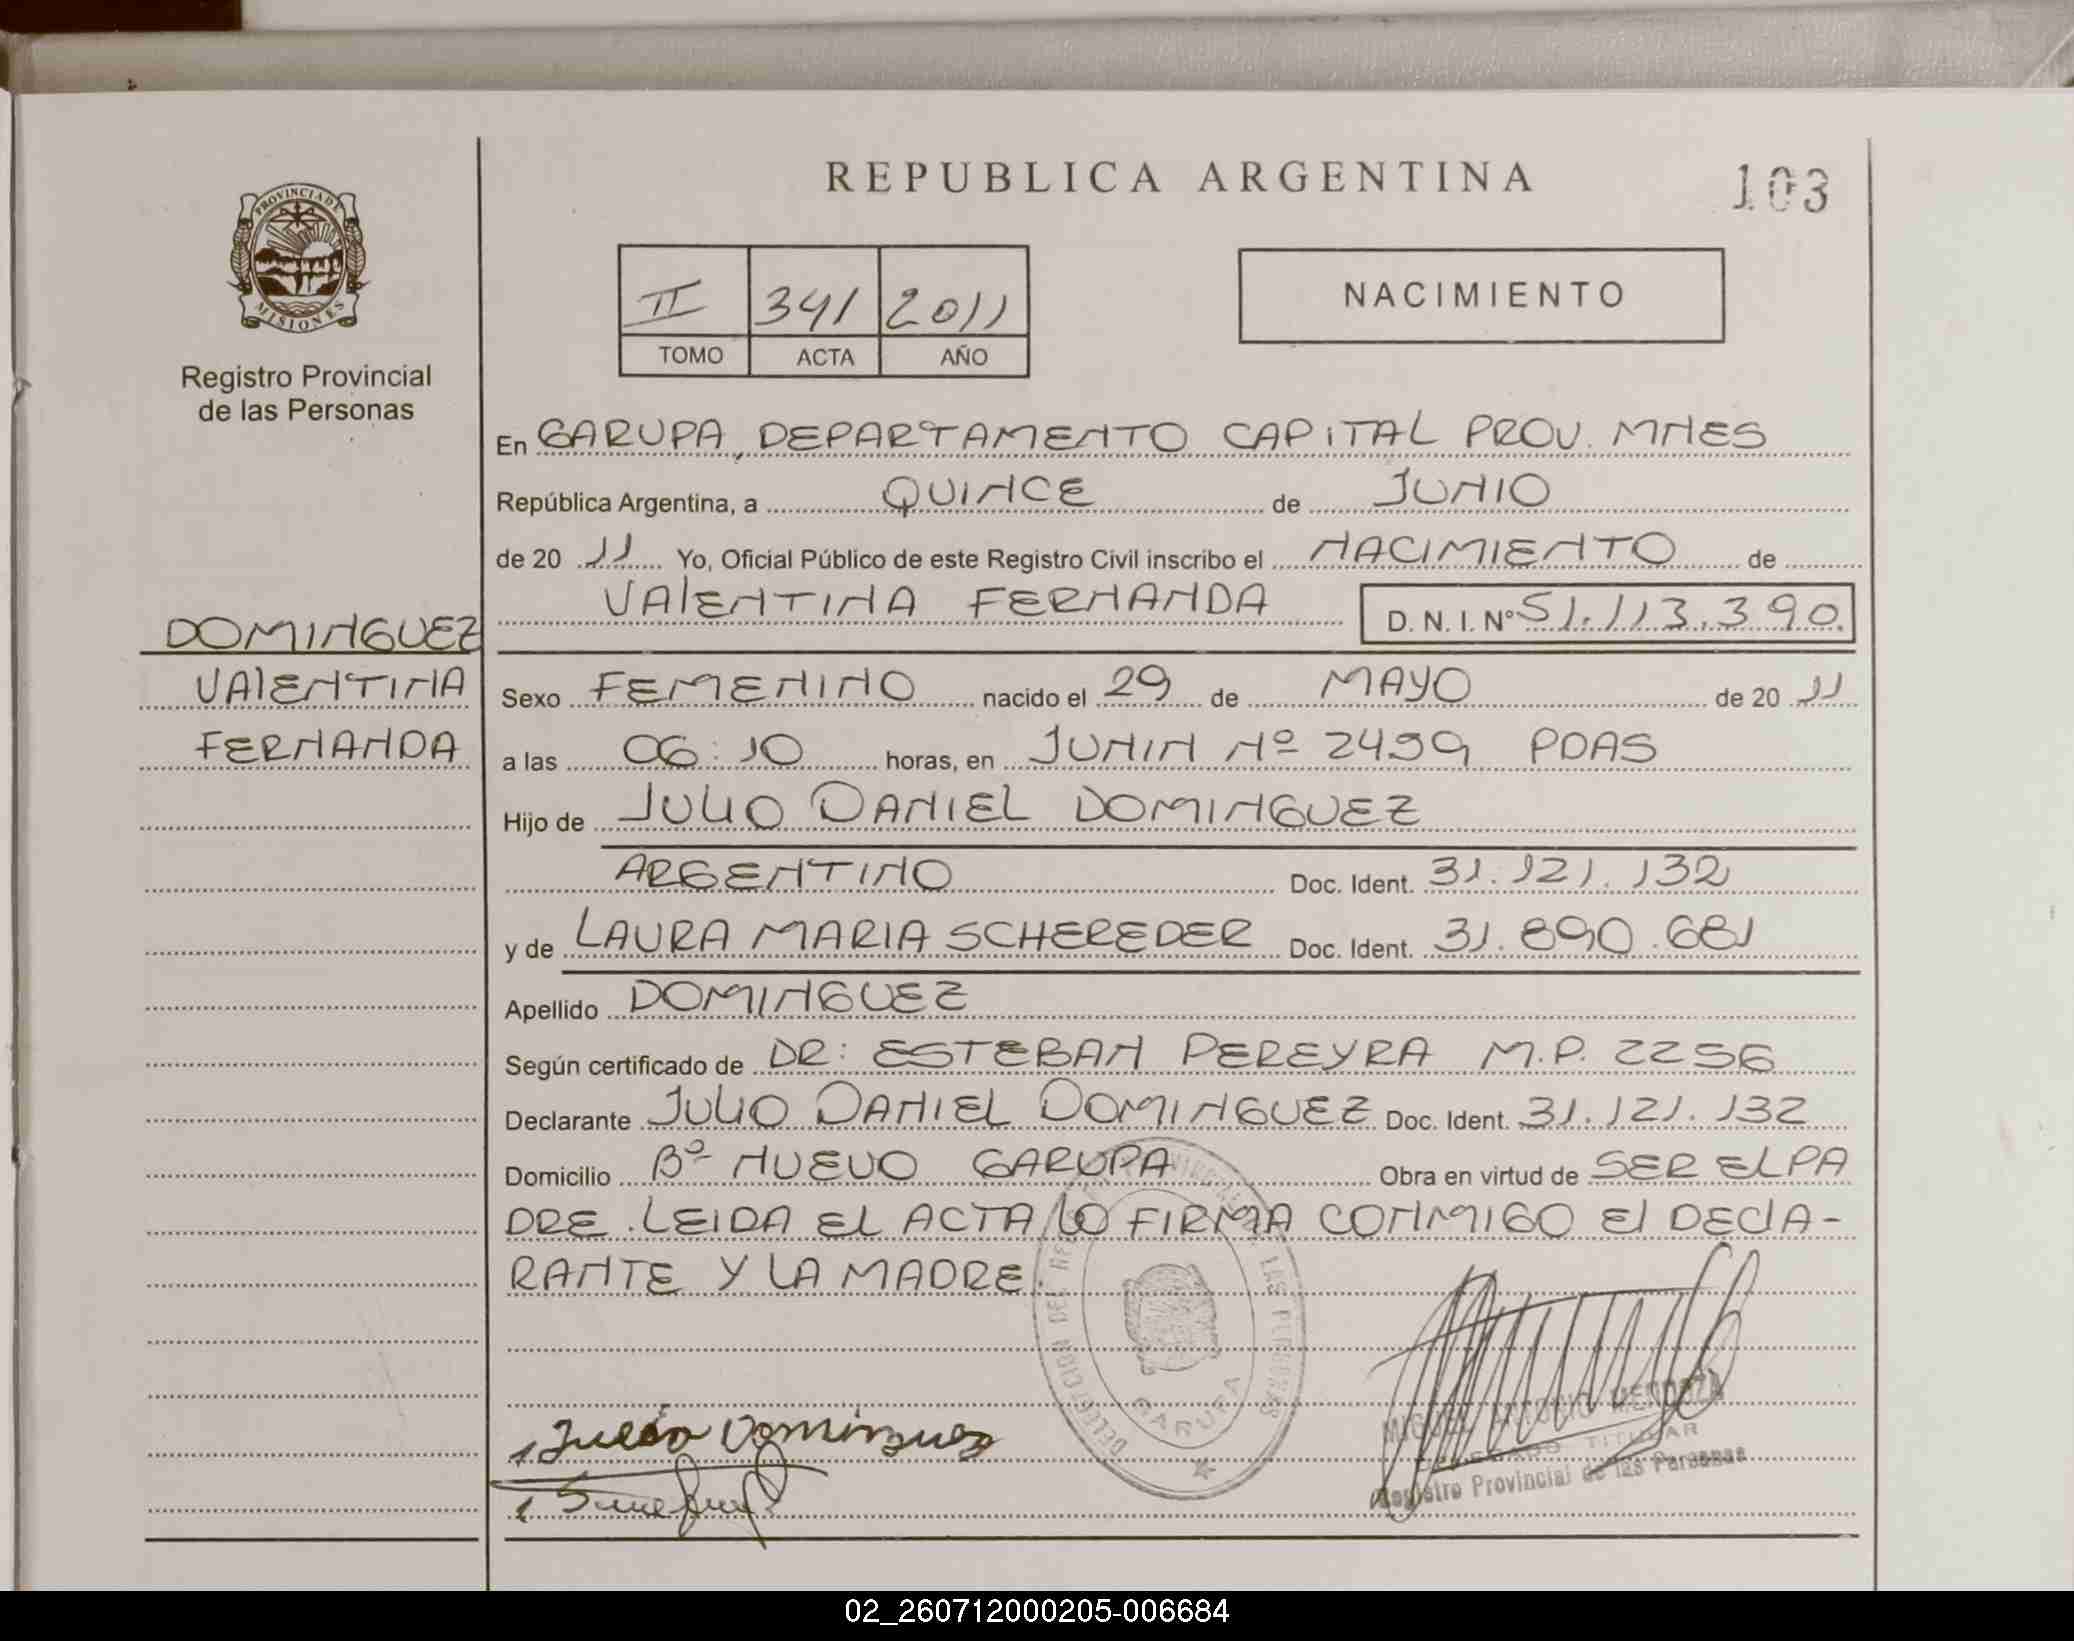 REPUBLICA ARGENTINA
103
PROVINCIA DE
MISIONES
Registro Provincial
de las Personas
II 341 2011
TOMO ACTA AÑO
NACIMIENTO
En GARUPA, DEPARTAMENTO CAPITAL PROV. MNES
República Argentina, a QUINCE de JUNIO
de 20 11 Yo, Oficial Público de este Registro Civil inscribo el NACIMIENTO de
VALENTINA FERNANDA D. N. I. Nº 51.113.390.
DOMINGUEZ
VALENTINA
FERNANDA
Sexo FEMENINO nacido el 29 de MAYO de 20 11
a las 06:10 horas, en JUNIN Nº 2499 PDAS
Hijo de JULIO DANIEL DOMINGUEZ
ARGENTINO Doc. Ident. 31.121.132
y de LAURA MARIA SCHEREDER Doc. Ident. 31.890.681
Apellido DOMINGUEZ
Según certificado de DR: ESTEBAN PEREYRA M.P. 2256
Declarante JULIO DANIEL DOMINGUEZ Doc. Ident. 31.121.132
Domicilio Bº NUEVO GARUPA Obra en virtud de SER EL PA
DRE. LEIDA EL ACTA LO FIRMA CONMIGO El DEClA-
RANTE Y LA MADRE
Julio Dominguez
GARUPA
MIGUEL ANTONIO MENDOZA
TITULAR
Registro Provincial de las Personas
02_260712000205-006684